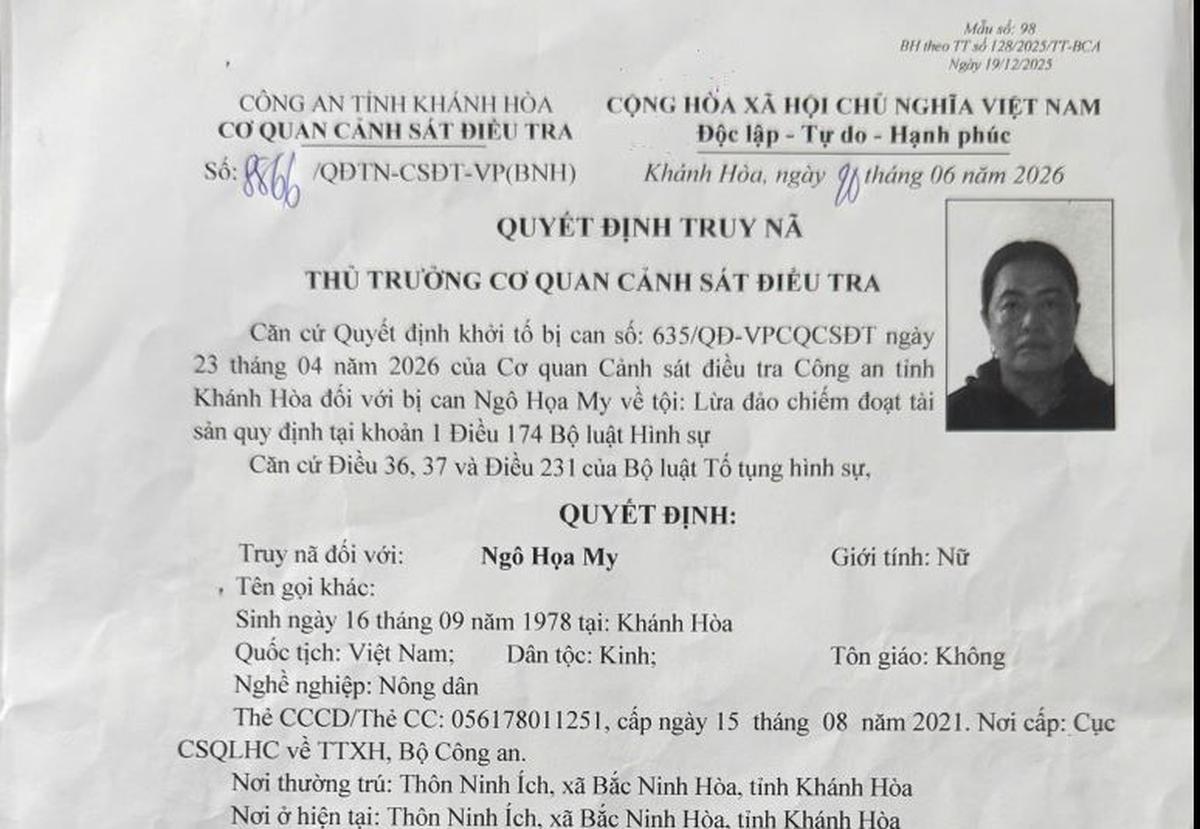 Mẫu số: 98
BH theo TT số 128/2025/TT-BCA
Ngày 19/12/2025
CÔNG AN TỈNH KHÁNH HÒA
CƠ QUAN CẢNH SÁT ĐIỀU TRA
Số: 8866 /QĐTN-CSĐT-VP(BNH)
CỘNG HÒA XÃ HỘI CHỦ NGHĨA VIỆT NAM
Độc lập - Tự do - Hạnh phúc
Khánh Hòa, ngày 20 tháng 06 năm 2026
QUYẾT ĐỊNH TRUY NÃ
THỦ TRƯỞNG CƠ QUAN CẢNH SÁT ĐIỀU TRA
Căn cứ Quyết định khởi tố bị can số: 635/QĐ-VPCQCSĐT ngày
23 tháng 04 năm 2026 của Cơ quan Cảnh sát điều tra Công an tỉnh
Khánh Hòa đối với bị can Ngô Họa My về tội: Lừa đảo chiếm đoạt tài
sản quy định tại khoản 1 Điều 174 Bộ luật Hình sự
Căn cứ Điều 36, 37 và Điều 231 của Bộ luật Tố tụng hình sự,
QUYẾT ĐỊNH:
Truy nã đối với: Ngô Họa My Giới tính: Nữ
Tên gọi khác:
Sinh ngày 16 tháng 09 năm 1978 tại: Khánh Hòa
Quốc tịch: Việt Nam; Dân tộc: Kinh; Tôn giáo: Không
Nghề nghiệp: Nông dân
Thẻ CCCD/Thẻ CC: 056178011251, cấp ngày 15 tháng 08 năm 2021. Nơi cấp: Cục
CSQLHC về TTXH, Bộ Công an.
Nơi thường trú: Thôn Ninh Ích, xã Bắc Ninh Hòa, tỉnh Khánh Hòa
Nơi ở hiện tại: Thôn Ninh Ích, xã Bắc Ninh Hòa, tỉnh Khánh Hòa